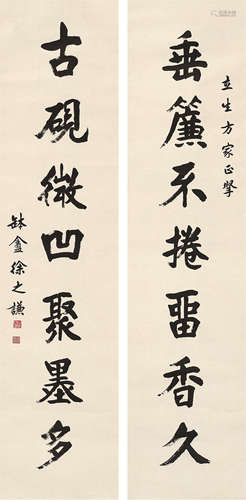 立生方家正擘
垂簾不捲畱香久
古硯微凹聚墨多
缽盦徐之謙